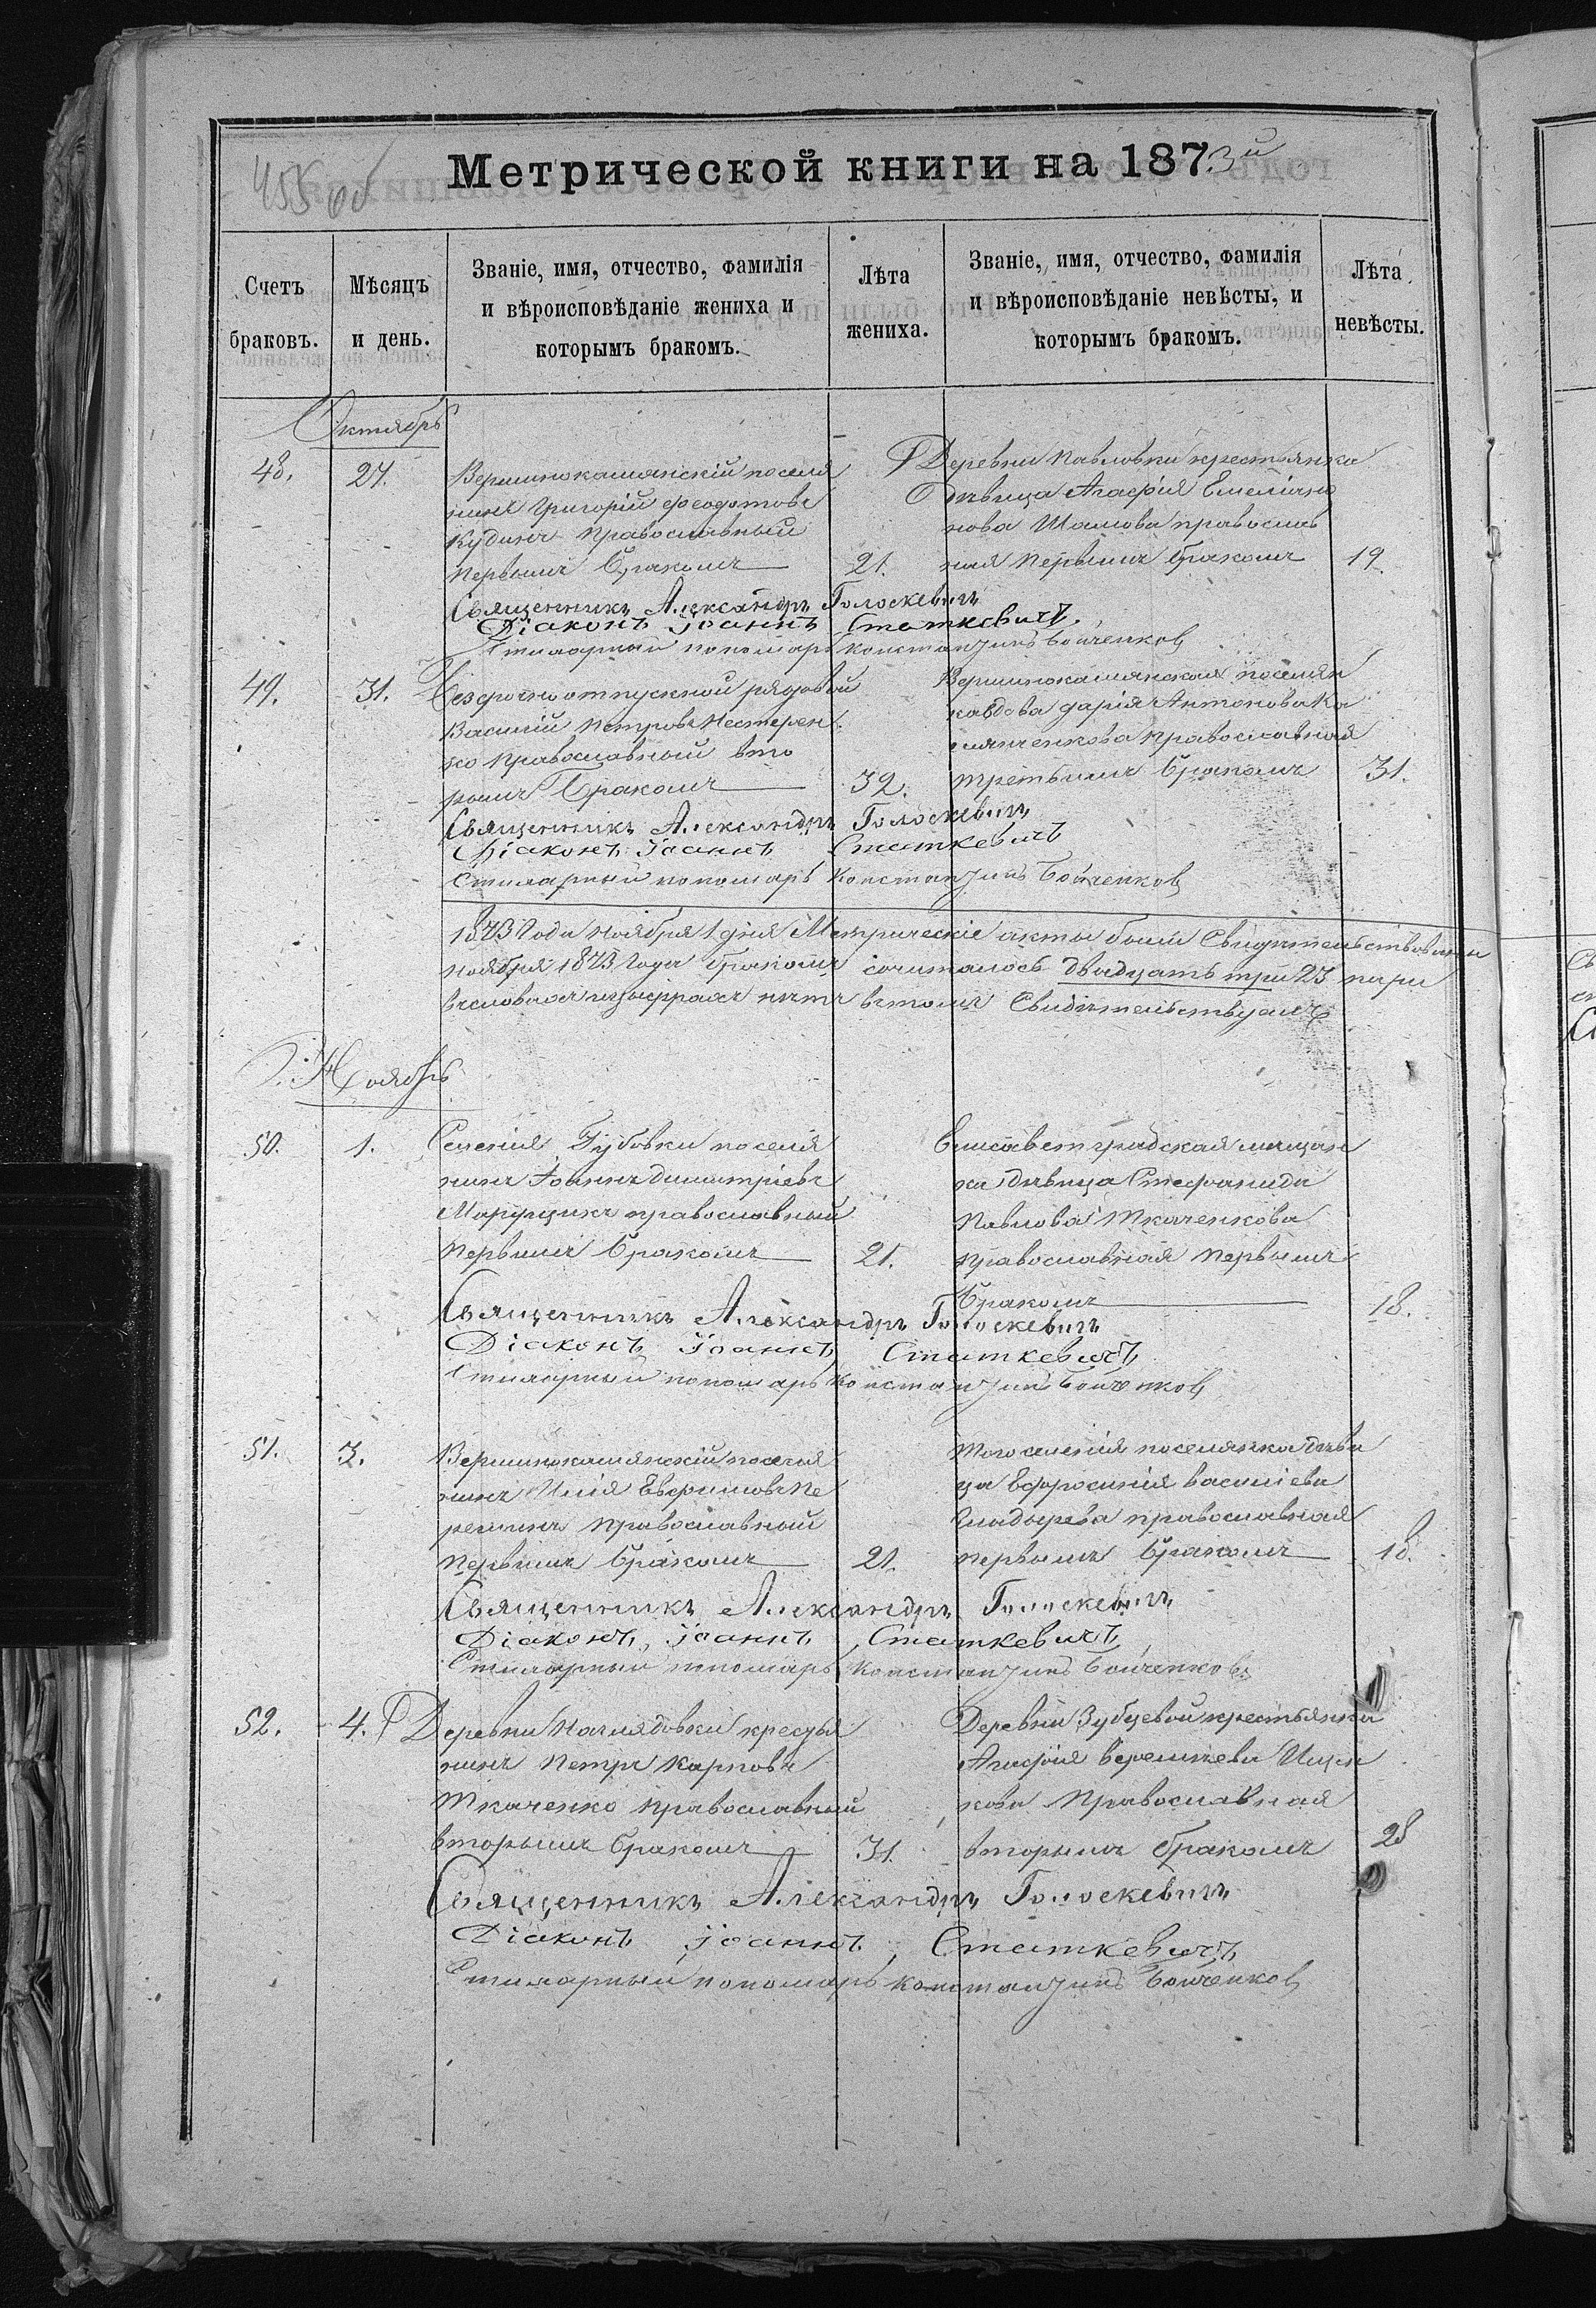 455 об
Метрической книги на 1873й
Счетъ браковъ.
Мѣсяцъ и день.
Званіе, имя, отчество, фамилія и вѣроисповѣданіе жениха и которымъ бракомъ.
Лѣта жениха.
Званіе, имя, отчество, фамилія и вѣроисповѣданіе невѣсты, и которымъ бракомъ.
Лѣта невѣсты.
Октябрь
48.
27.
Вершинокамянскій поселя
нинъ Григорій Феодотовъ
Кудинъ православный
первымъ бракомъ
21.
Деревни Павловки крестьянка
дѣвица Агафія Емеліано
нова Шамова православ
ная первымъ бракомъ
19.
Священникъ Александръ Голоскевичъ
Діаконъ Іоаннъ Статкевичъ.
пономарь Константинъ Бойченковъ
49.
31.
Безсрочно отпускной рядовой
Василій Петровъ Нестерен
ко православный вто
рымъ бракомъ
32.
Вершинокамянская поселян
ка вдова Дарія Антонова Ка
православная
третьимъ бракомъ
31.
Священникъ Александръ Голоскевичъ
Діаконъ Іоаннъ Статкевичъ
пономарь Константинъ Бойченковъ
1873 года ноября 1 дня Метрическіе акты были свидѣтельствованы
ноября 1873 года бракомъ сочиталось двадцать три 23 пары
въ словахъ и цыфрахъ нѣтъ въ томъ свидѣтельствуемъ
Ноябрь
50.
1.
Селенія Губовки поселя
нинъ Іоаннъ Димитріевъ
Марущикъ православный
первымъ бракомъ
21.
Елисаветградская мѣщан
ка дѣвица Стефанида
Павлова Ткаченкова
православная первымъ
бракомъ
18.
Священникъ Александръ Голоскевичъ
Діаконъ Іоаннъ Статкевичъ
пономарь Константинъ Бойченковъ
51.
3.
Вершинокамянскій поселя
нинъ Илія Евфимовъ Пе
православный
первымъ бракомъ
21.
Того селенія поселянка дѣви
ца Евфросинія Василіева
Гладырева православная
первымъ бракомъ
18.
Священникъ Александръ Голоскевичъ
Діаконъ Іоаннъ Статкевичъ
пономарь Константинъ Бойченковъ
52.
4.
Деревни кресья
нинъ Петръ Карповъ
Ткаченко православный
вторымъ бракомъ
31.
Деревни Зубцевой крестьянка
Агафія Веремѣева Ищен
кова православная
вторымъ бракомъ
28
Священникъ Александръ Голоскевичъ
Діаконъ Іоаннъ Статкевичъ
пономарь Константинъ Бойченковъ